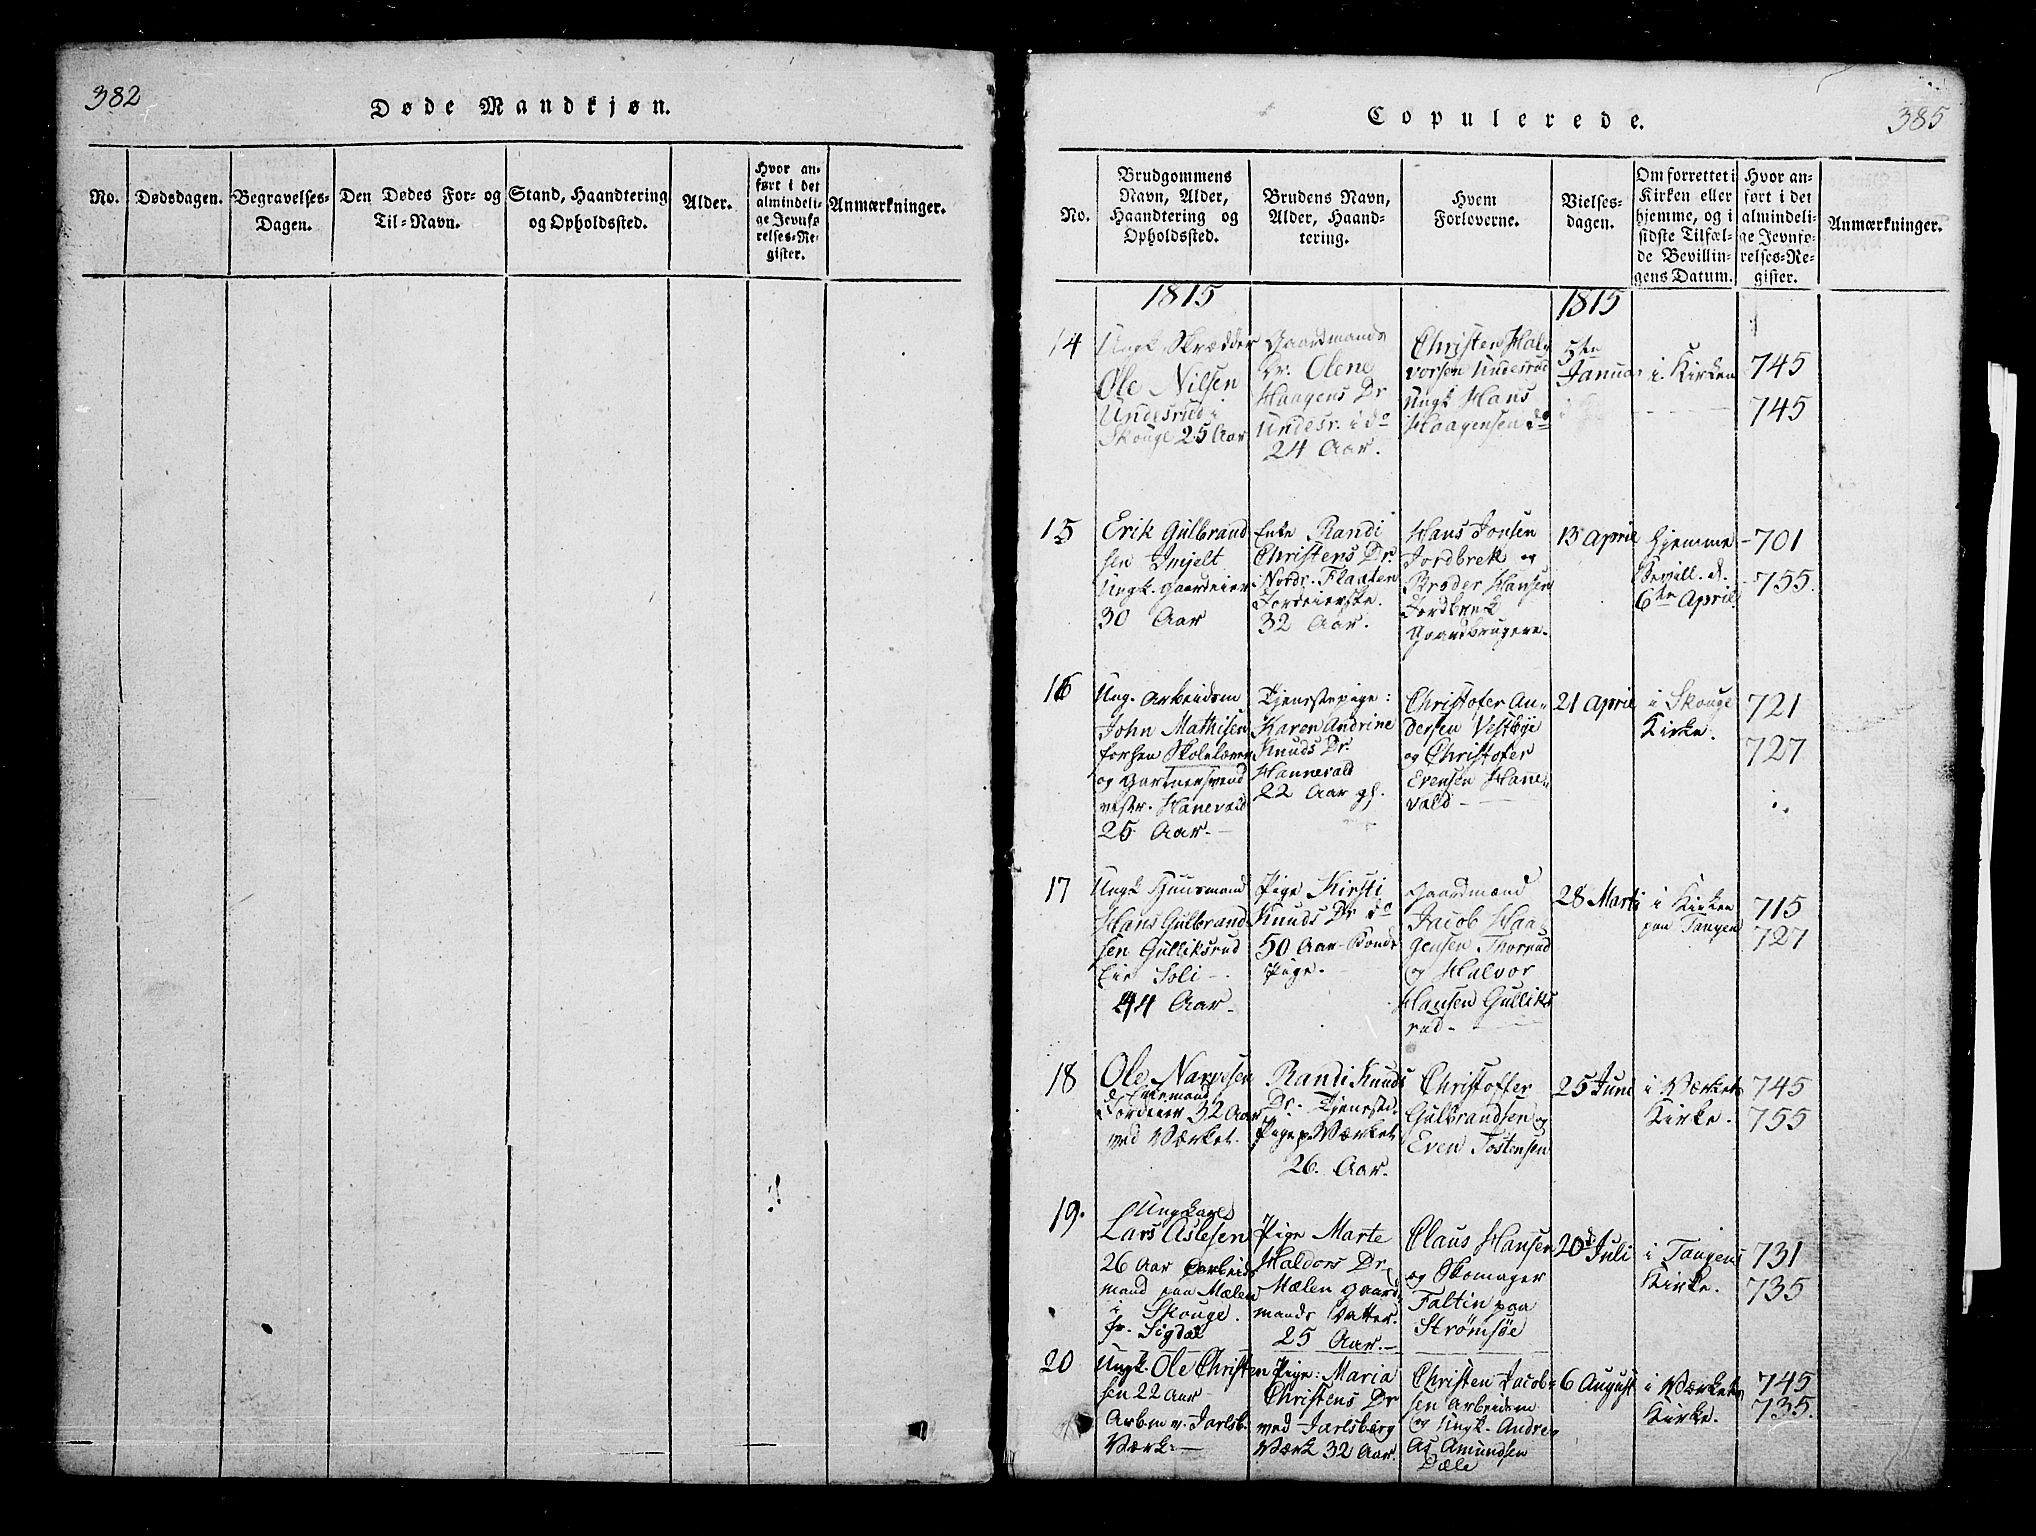 382
Døde Mandkjøn.
No.
Dødsdagen.
Begravelses-
Dagen.
Den Dødes For- og
Til-Navn.
Stand, Haandtering
og Opholdssted.
Alder.
Hvor an-
ført i det
almindeli-
ge Jevnfø-
relses-Re-
gister.
Anmærkninger.
Copulerede.
385
No.
Brudgommens
Navn, Alder,
Haandtering og
Opholdssted.
Brudens Navn,
Alder, Haand-
tering.
Hvem
Forloverne.
Vielses-
dagen.
Om forrettet i
Kirken eller
hjemme, og i
sidste Tilfæl-
de Bevillin-
gens Datum.
Hvor an-
ført i det
almindeli-
ge Jevnfø-
relses-Re-
gister.
Anmærkninger.
1815
1815
14
Ungk. Skrædder
Ole Nilsen
Undesrud i
Skouge 25 Aar
Gaardmands
Dr. Olene
Haagens Dr
Undesr. i do
24 Aar.
Christen Hal-
vorsen Undesrud
Ungk Hans
Haagensen do
5te
Januar
i Kirken
745
745
15
Erik Gulbrand
sen Injelt
Ungk. Gaardeier
30 Aar
Enke Randi
Christens Dr.
Nordr. Flaaten
Jordeierske.
32 Aar.
Hans Jonsen
Jordbrek og
Broder Hansen
Jordbrek
Gaardbrugere.
13 April
hjemme
Bevill. d.
6te April
701
755.
16
Ung. Arbeidsm
John Mathisen
forhen Skolelærer
og Gartnersvend
vestr. Hanevald
25 Aar.
Tjenestepige:
Karen Andrine
Knuds Dr.
Hannevald
22 Aar gl.
Christofer An-
dersen Vestbye
og Christofer
Evensen Hane-
vald
21 April
i Skouge
Kirke.
721
727
17
Ungk Huusmand
Hans Gulbrand
sen Gulliksrud
Eie Soli
44 Aar
Pige Kirsti
Knuds Dr do
50 Aar Bonde
Pige.
Gaardmænd
Jacob Haa-
gensen Thorrud
og Halvor
Hansen Gulliks
rud
28 Marts
i Kirken
paa Tangen
715
727
18
Ole Narvesen
Enkemand
Jordeier 32 Aar
ved Værket.
Randi Knuds
Dr. Tjenested.
Pige p. Værket
26. Aar.
Christoffer
Gulbrandsen og
Even Tostensen
25 Juni
i Værkets
Kirke.
745
755
19.
Ungkarl
Lars Aslesen
26 Aar Arbeids
mand paa Mælen
i Skouge.
fr. Sigdal
Pige Marte
Haldors Dr.
Mælen Gaard
mands Datter.
25 Aar.
Claus Hansen
og Skomager
Faltin paa
Strømsøe
20d Juli
i Tangens
Kirke.
731
735
20
Ungk. Ole Christen
sen 22 Aar
Arbm v. Jarlsb.
Værk
Pige: Maria
Christens Dr
ved Jarlsberg
Værk 32 Aar.
Christen Jacob-
sen Arbeidsm
og Ungk. Andre-
as Amundsen
Dæle
6 August
i Værkets
Kirke.
745
735.